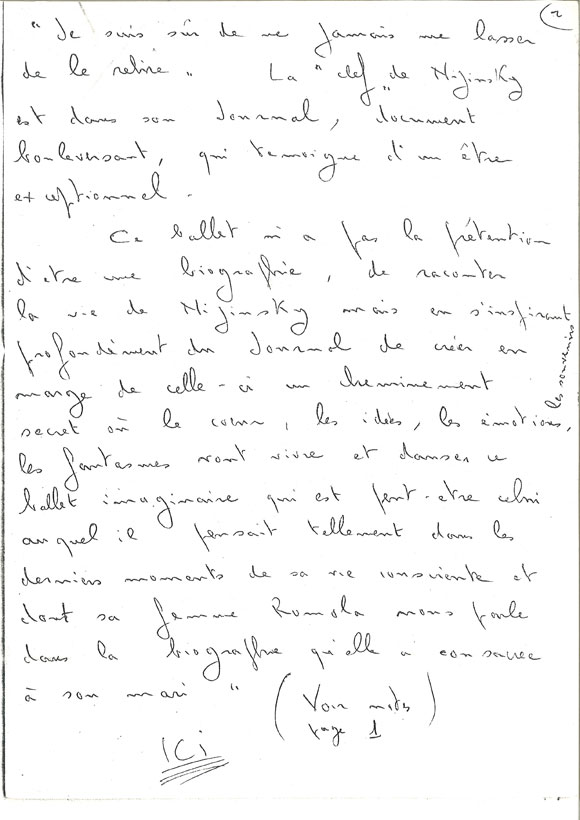 2
"Je suis sûr de ne jamais me lasser
de le relire". La "clef" de Nijinsky
est dans son Journal, document
bouleversant, qui temoigne d'un être
exceptionnel.
Ce ballet n'a pas la prétention
d'etre une biographie, de raconter
la vie de Nijinsky mais en s'inspirant
profondément du Journal de créer en
marge de celle-ci un cheminement
secret où le cœur, les idées, les émotions, les souvenirs
les fantasmes vont vivre et danser ce
ballet imaginaire qui est peut-etre celui
auquel il pensait tellement dans les
derniers moments de sa vie consciente et
dont sa femme Romola nous parle
dans la biographie qu'elle a consacrée
à son mari" (Voir notes
page 1)
ICi